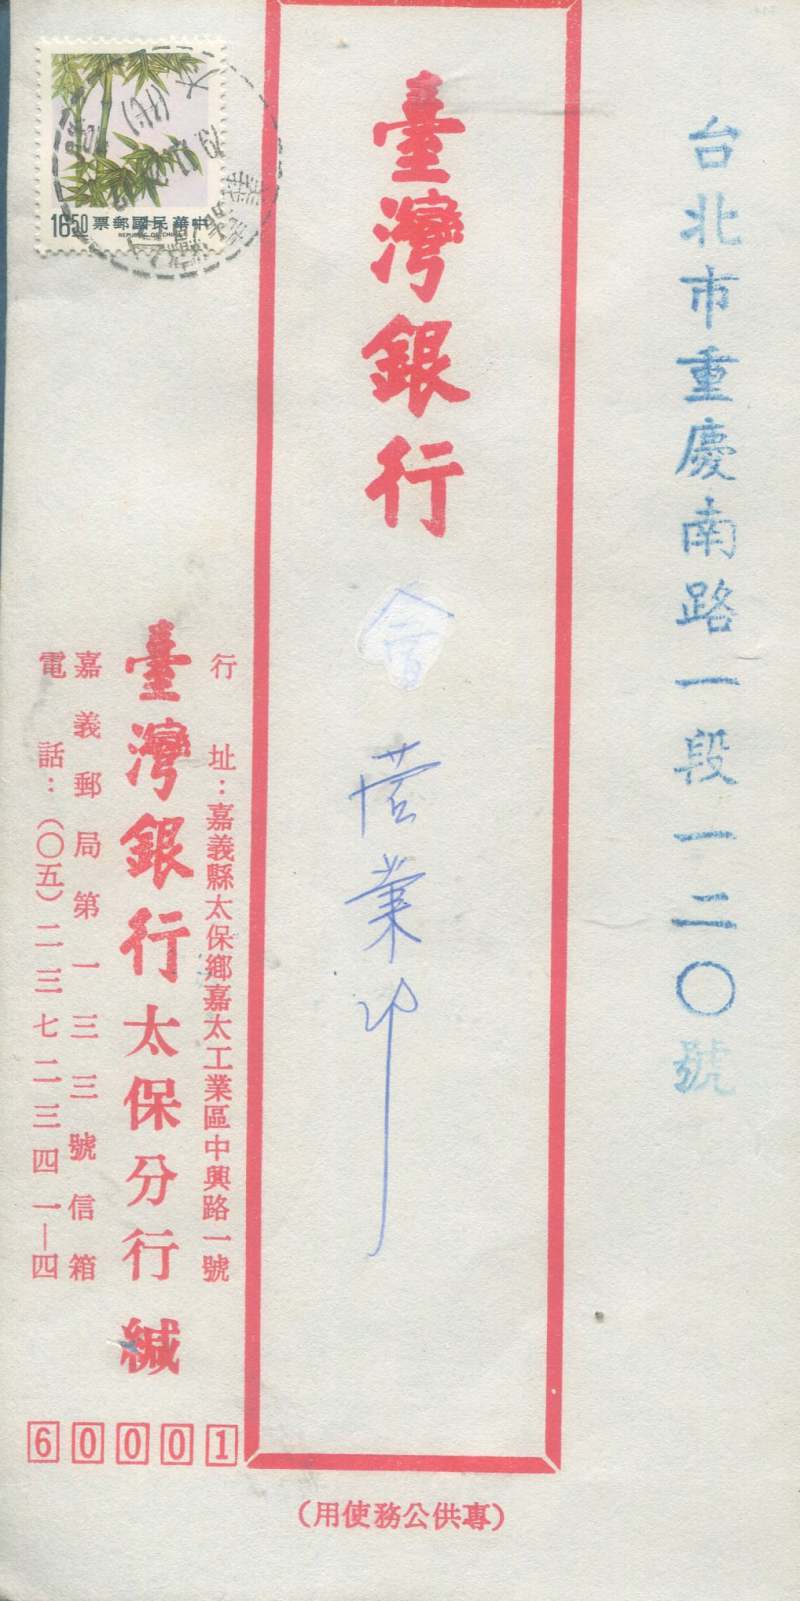 台北市重慶南路一段一二〇號
臺灣銀行 營業部
行址：嘉義縣太保鄉嘉太工業區中興路一號
臺灣銀行太保分行 緘
嘉義郵局第一三三號信箱
電話：（〇五）二三七二三四一—四
60001
（專供公務使用）
中華民國郵票
REPUBLIC OF CHINA
16.50